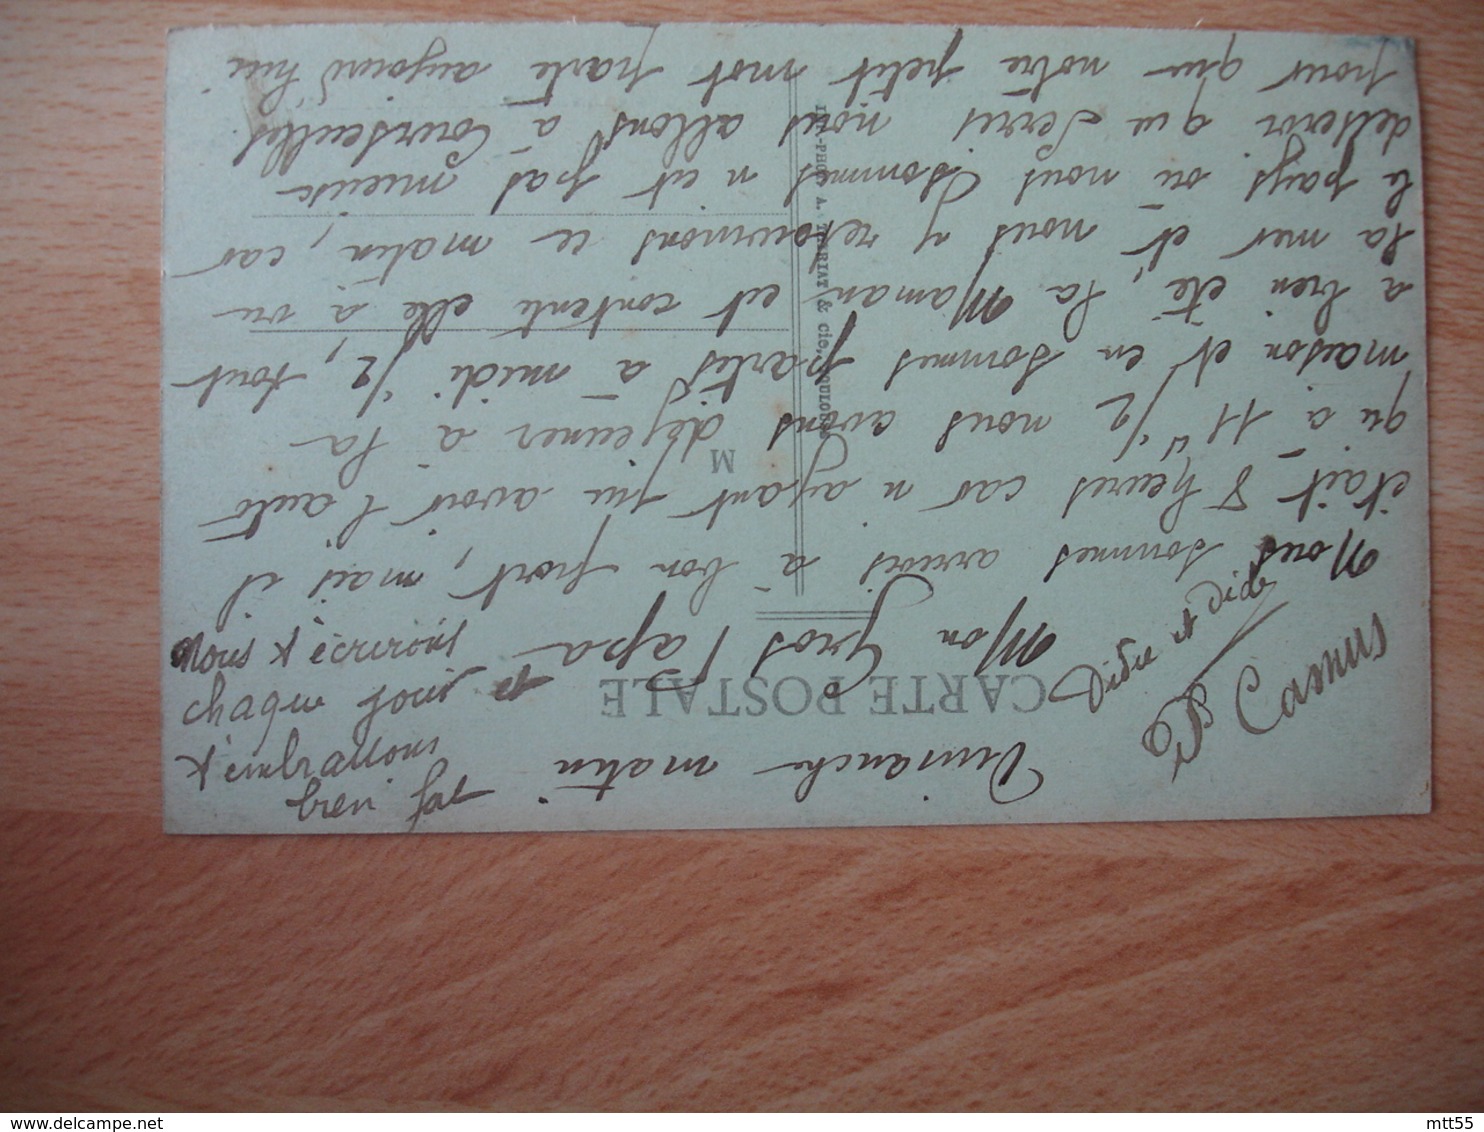 Dimanche matin
CARTE POSTALE
Mon Gros Papa
Nous sommes arrivés à bon port, mais il
était 8 heures car n ayant pu avoir l auto
qu à 11 h 1/2 nous avons déjeuner à la
maison et en sommes partis à midi 1/2, tout
a bien été, la Maman est contente elle à vu
la mer et nous y retournons ce matin, car
le pays où nous sommes n est pas mieux
desservi que Serres nous allons à Courseulles
pour que notre petit mot parte aujourd hui
bien fort
t'embrassons
chaque jour
Nous t écrirons
P Camus
Didi
M
IMP.-PHOT. A. & Cie,
mtt55